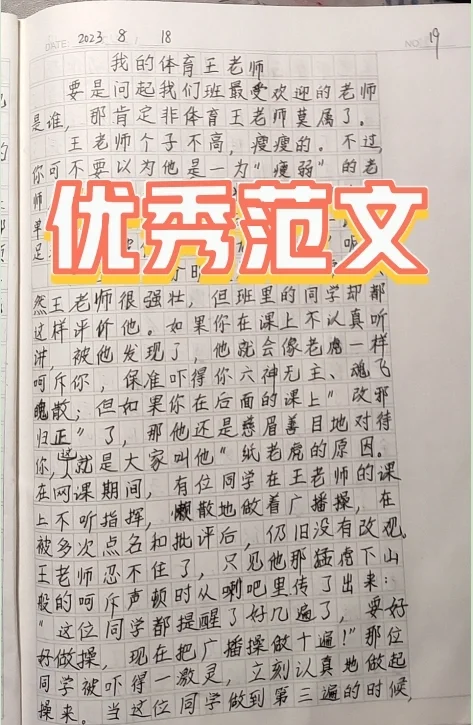 DATE: 2023 8, 18
NO. 19
我的体育王老师
要是问起我们班最受欢迎的老师
是谁，那肯定非体育王老师莫属了。
王老师个子不高，瘦瘦的。不过，
你可不要以为他是一为“瘦弱”的老
师
足
优秀范文
然王老师很强壮，但班里的同学却都
这样评价他。如果你在课上不认真听
讲，被他发现了，他就会像老虎一样
呵斥你，保准吓得你六神无主、魂飞
魄散；但如果你在后面的课上“改邪
归正”了，那他还是慈眉善目地对待
你，这就是大家叫他“纸老虎的原因。
在网课期间，有位同学在王老师的课
上不听指挥，懒散地做着广播操，在
被多次点名和批评后，仍旧没有改观。
王老师忍不住了，只见他那猛虎下山
般的呵斥声顿时从喇吧里传了出来：
“这位同学都提醒了好几遍了，要好
好做操，现在把广播操做十遍！”那位
同学被吓得一激灵，立刻认真地做起
操来。当这位同学做到第三遍的时候，